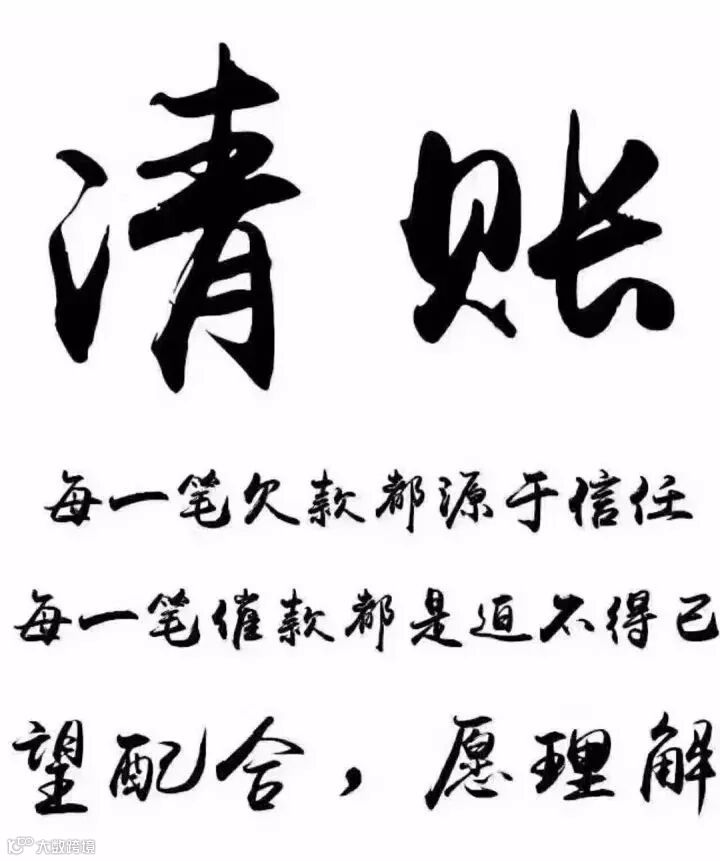 清账
每一笔欠款都源于信任
每一笔催款都是迫不得已
望配合，愿理解
大数跨境